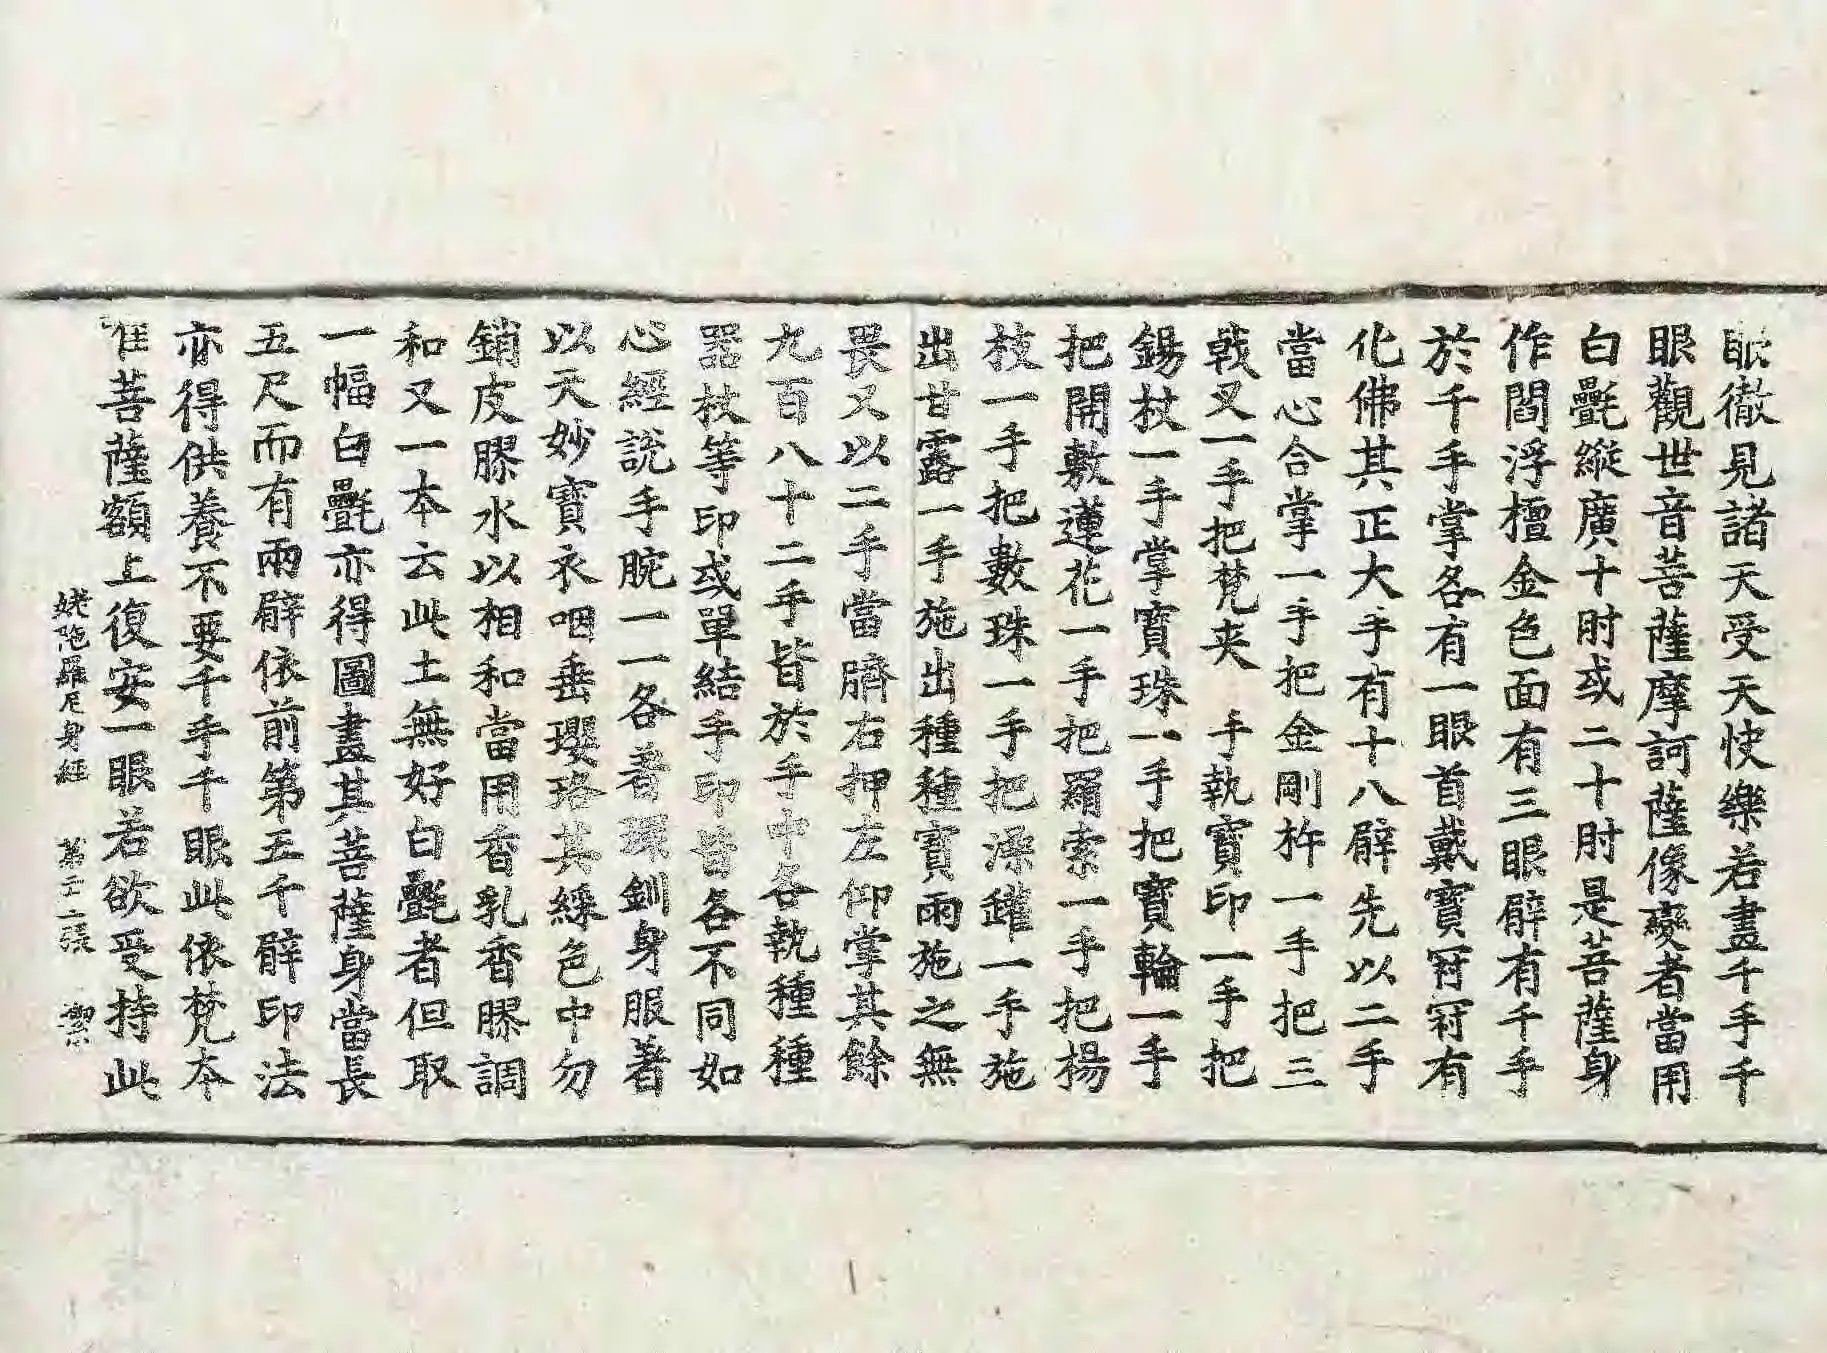 眼徹見諸天受天快樂若畫千手千
眼觀世音菩薩摩訶薩像變者當用
白㲲縱廣十肘或二十肘是菩薩身
作閻浮檀金色面有三眼臂有千手
於千手掌各有一眼首戴寶冠冠有
化佛其正大手有十八臂先以二手
當心合掌一手把金剛杵一手把三
戟叉一手把梵夾 手執寶印一手把
錫杖一手掌寶珠一手把寶輪一手
把開敷蓮花一手把羂索一手把楊
枝一手把數珠一手把澡罐一手施
出甘露一手施出種種寶雨施之無
畏又以二手當臍右押左仰掌其餘
九百八十二手皆於手中各執種種
器杖等印或單結手印皆各不同如
心經說手腕一一各著環釧身服著
以天妙寶衣咽垂瓔珞其綵色中勿
銷皮膠水以相和當用香乳香膠調
和又一本云此土無好白㲲者但取
一幅白㲲亦得圖畫其菩薩身當長
五尺而有兩臂依前第五千臂印法
亦得供養不要千手千眼此依梵本
唯菩薩額上復安一眼若欲受持此
姥陁羅尼身經 第二張